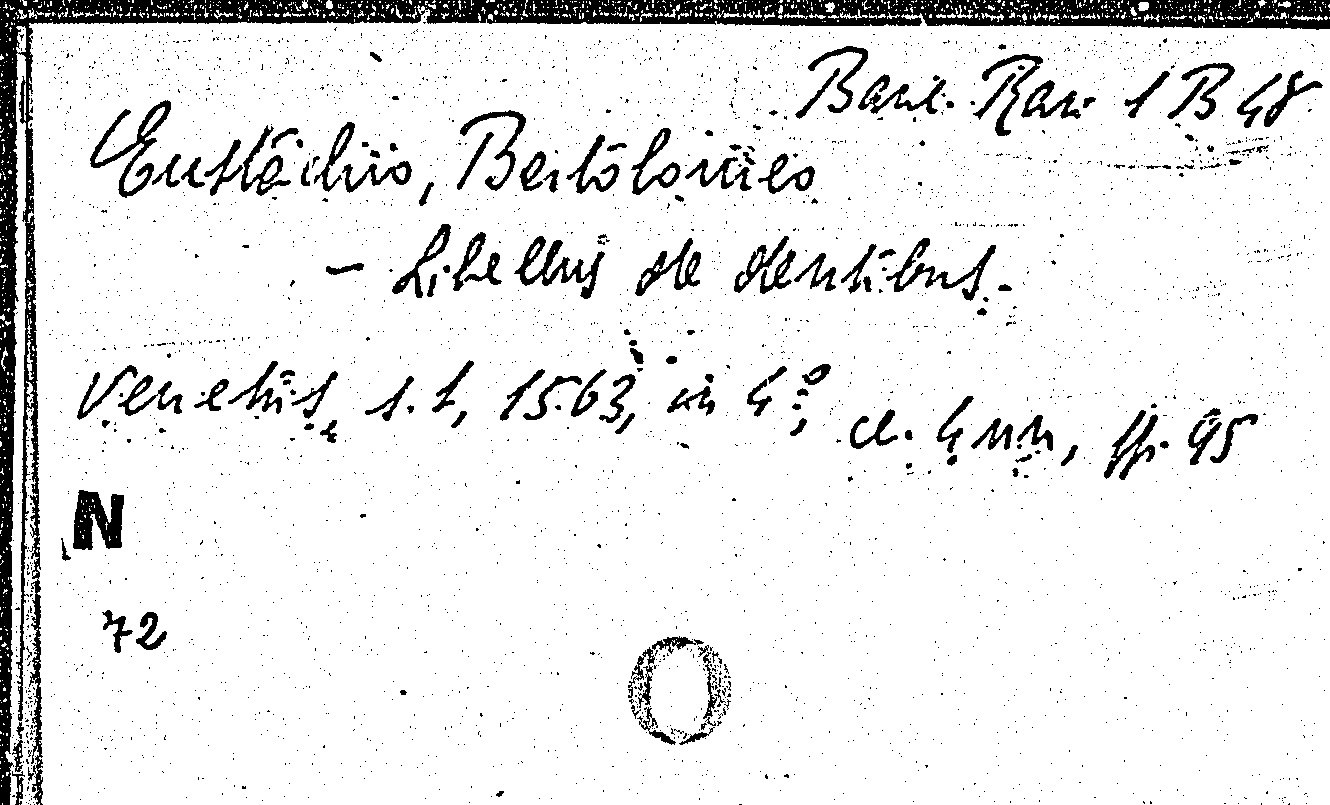 Banc. Rari 1 B 48
Eustachio, Bartolomeo
- Libellus de dentibus.-
Venetiis, s.t, 1563, in 4°, cc. 4 nn, pp. 95
N
72